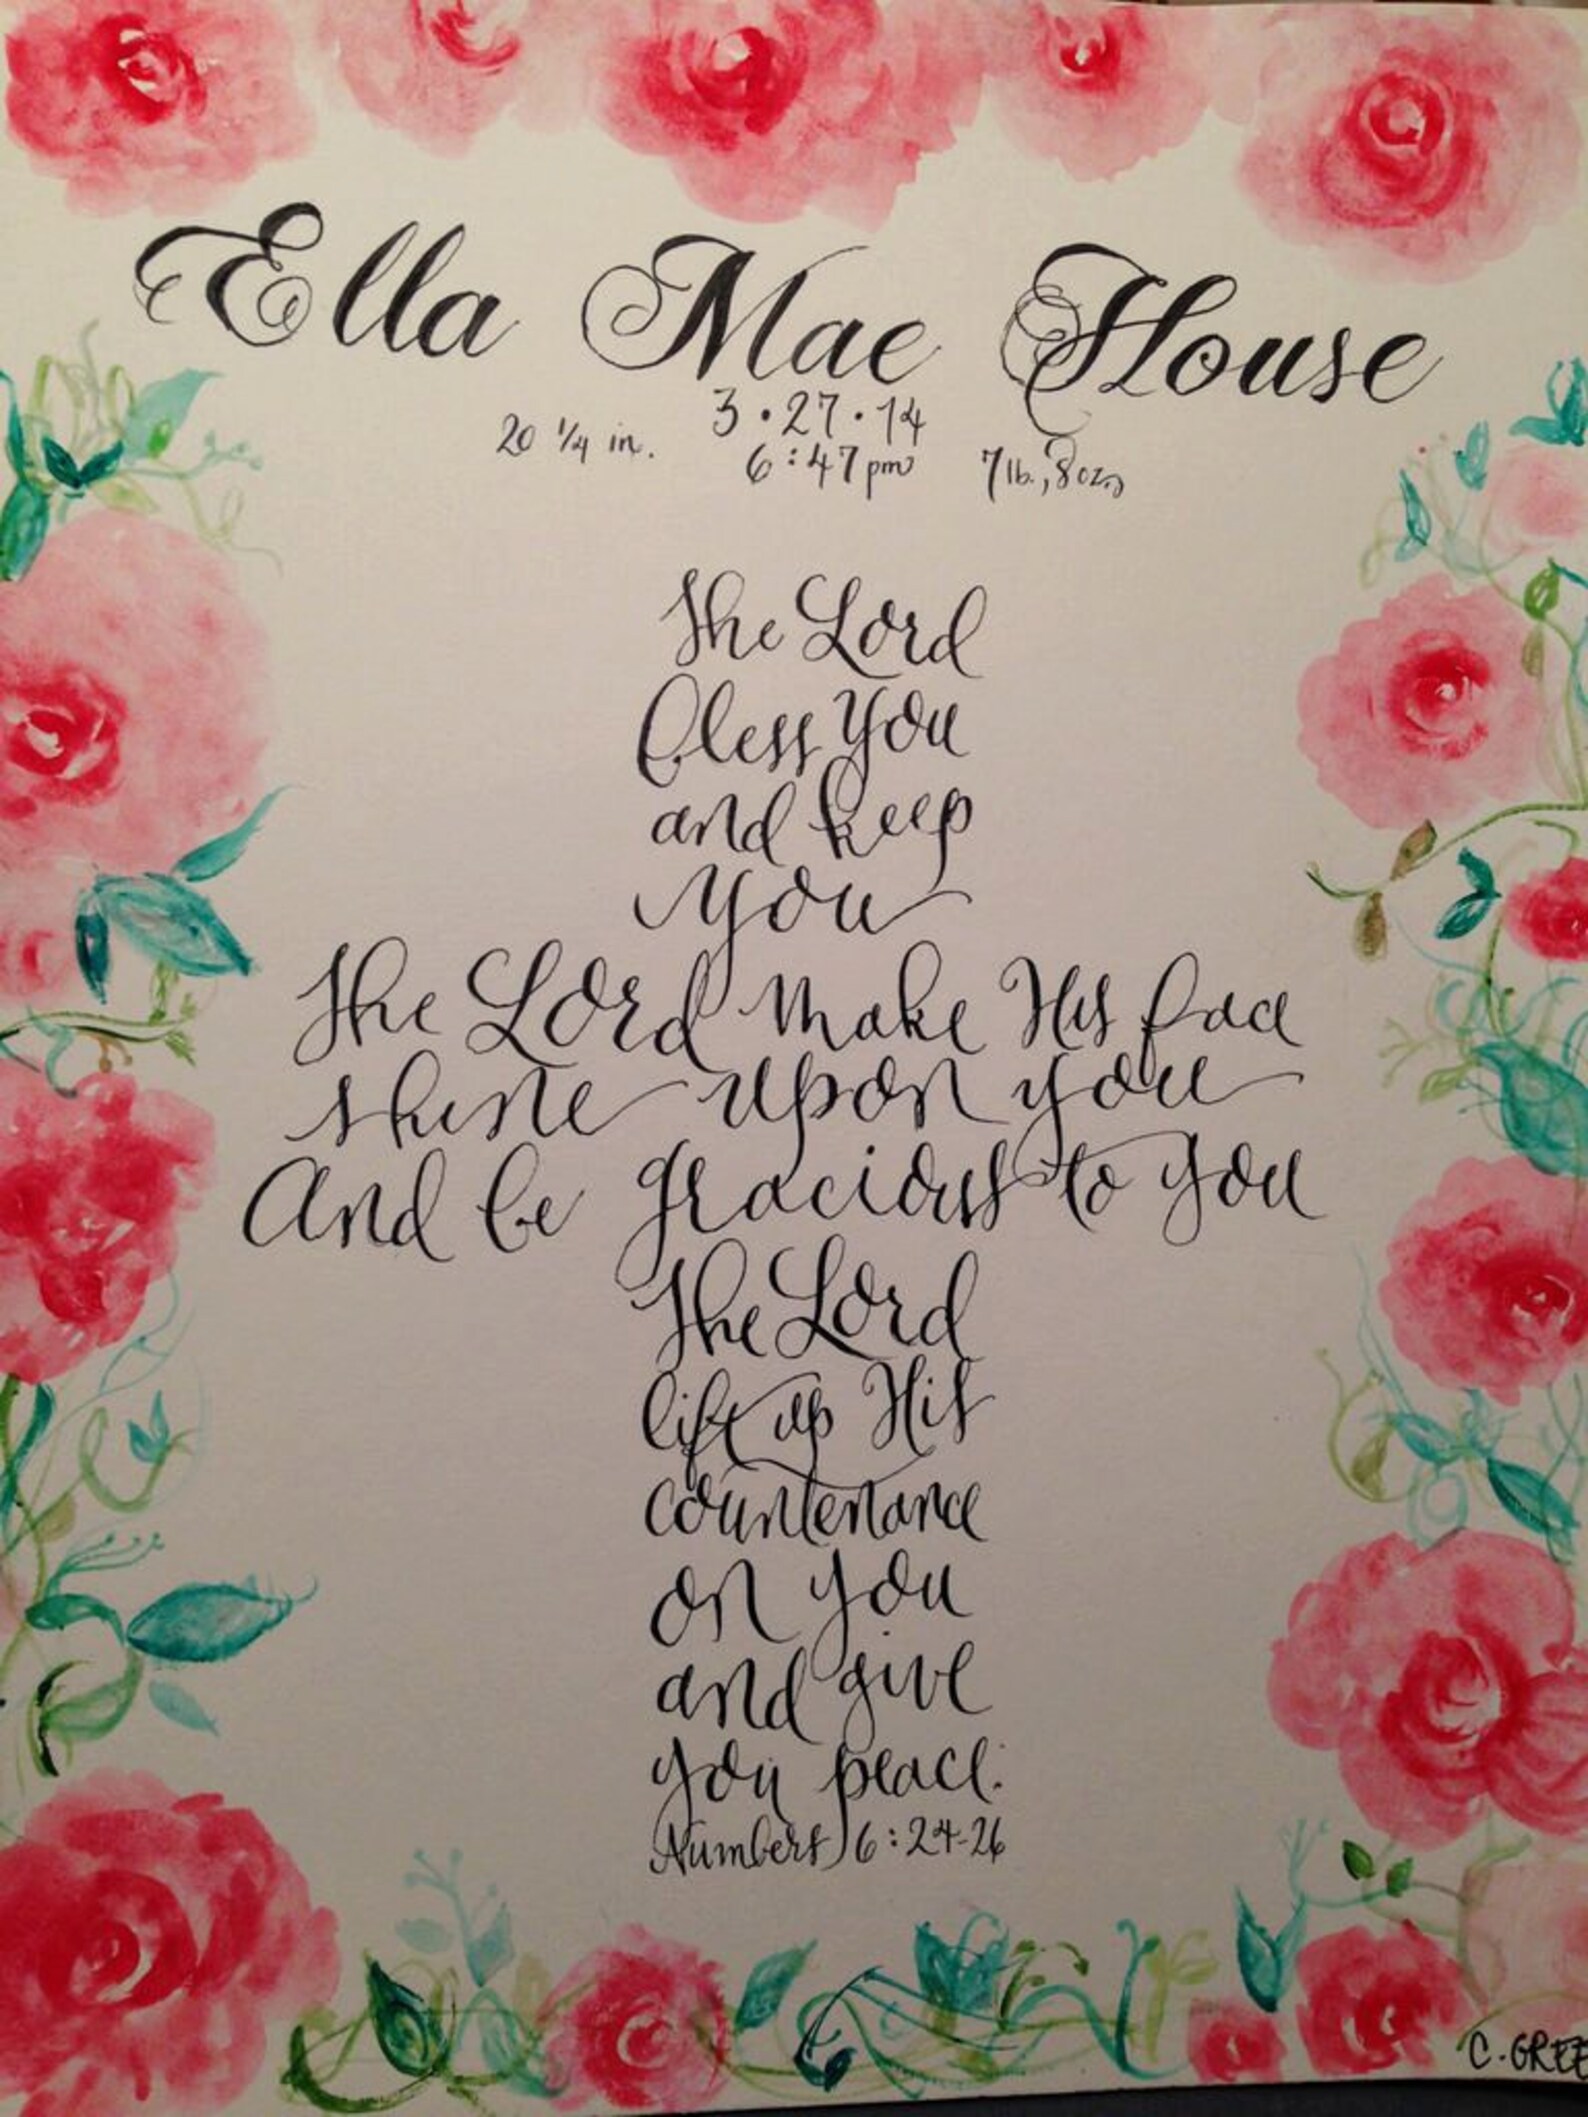 Ella Mae House
3•27•14
20 1/4 in. 6:47pm 7lb., 8oz.
The Lord
bless you
and keep
you
The Lord make His face
shine upon you
And be gracious to you
The Lord
lift up His
countenance
on you
and give
you peace.
Numbers 6:24-26
C. GREE